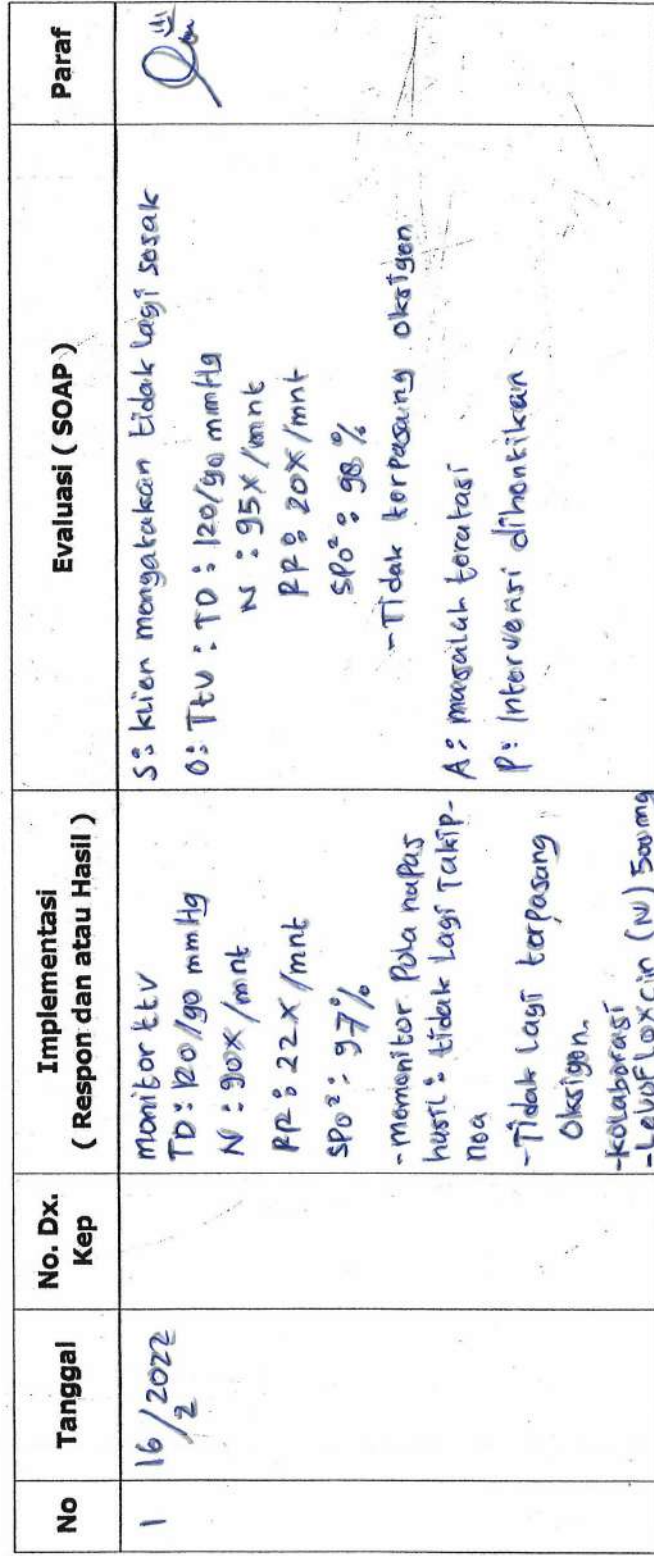 No
Tanggal
No. Dx.
Kep
Implementasi
( Respon dan atau Hasil )
Evaluasi ( SOAP )
Paraf
1
16/2022
2
monitor ttv
TD: 120/90 mmHg
N : 90x/mnt
RR: 22x/mnt
SPO²: 97%
-memonitor Pola napas
hasil: tidak lagi Takip-
nea
-Tidak lagi terpasang
Oksigen.
-Kolaborasi
-Levofloxcin (IV) 500mg
S: klien mengatakan tidak lagi sesak
O: TtV : TD : 120/90 mmHg
N : 95x/mnt
RR: 20x/mnt
SPO²: 98%
-Tidak terpasang oksigen
A: masalah teratasi
P: Intervensi dihentikan